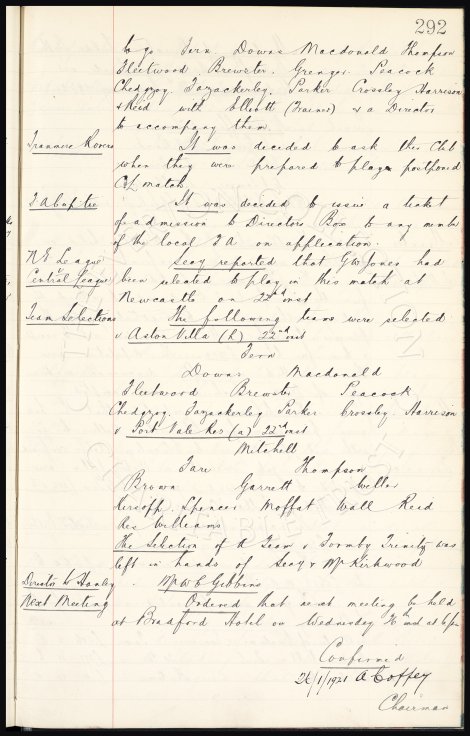 292
to go Fern Downs Macdonald Thompson
Fleetwood. Brewster. Grenyer. Peacock
Chedgzoy. Fazackerley. Parker Crossley Harrison
& Reid with Elliott (Trainer) & a Director
to accompany them.
Tranmere Rovers It was decided to ask this Club
when they were prepared to play postponed
C/L match.
F A Cup-tie It was decided to issue a ticket
of admission to Directors Box to any member
of the local F A on application.
N E League v Central League Secy reported that G W Jones had
been selected to play in this match at
Newcastle on 22nd inst
Team Selections The following teams were selected
v Aston Villa (h) 22nd inst
Fern
Downs Macdonald
Fleetwood Brewster Peacock
Chedgzoy. Fazackerley Parker Crossley. Harrison
v Port Vale Res (a) 22nd inst
Mitchell
Fare Thompson
Brown Garrett Weller
Kirsopp Spencer Moffat Wall Reid
Res Williams
The Selection of A Team v Formby Trinity was
left in hands of Secy & Mr Kirkwood
Director to Hanley Mr W C Gibbins
Next Meeting Ordered that next meeting be held
at Bradford Hotel on Wednesday 26 inst at 6 pm
Confirmed
26/1/1921 A Coffey
Chairman